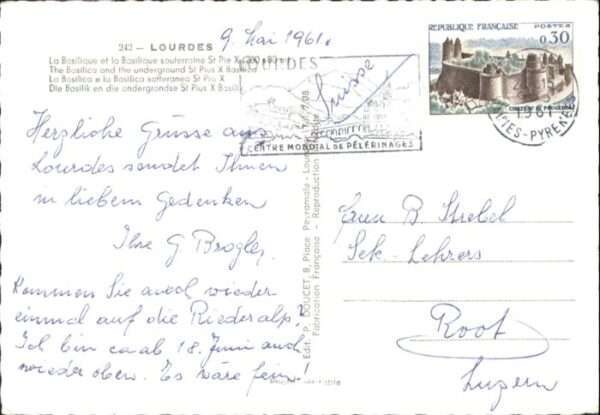 242 — LOURDES
9. Mai 1961.
La Basilique et la Basilique souterraine St Pie X
The Basilica and the underground St Pius X Basilica
La Basilica e la Basilica sotteranea St Pius X
Die Basilik en die undergrondse St Pius X Basilik
Herzliche Grüsse aus
Lourdes sendet Ihnen
in liebem Gedenken
Ihre G Brogle,
Kommen Sie auch wieder
einmal auf die Riederalp?
Ich bin ca ab 18. Juni auch
wieder oben. Es wäre fein!
LOURDES
CENTRE MONDIAL DE PÈLERINAGES
Suisse
REPUBLIQUE FRANÇAISE POSTES
0,30
CHATEAU DE
1961
TES-PYRENEES
Edit. P. DOUCET, 8, Place Peyramale - Lourdes
Fabrication Française - Reproduction
B. Strebel
Sek. Lehrers
Root
Luzern